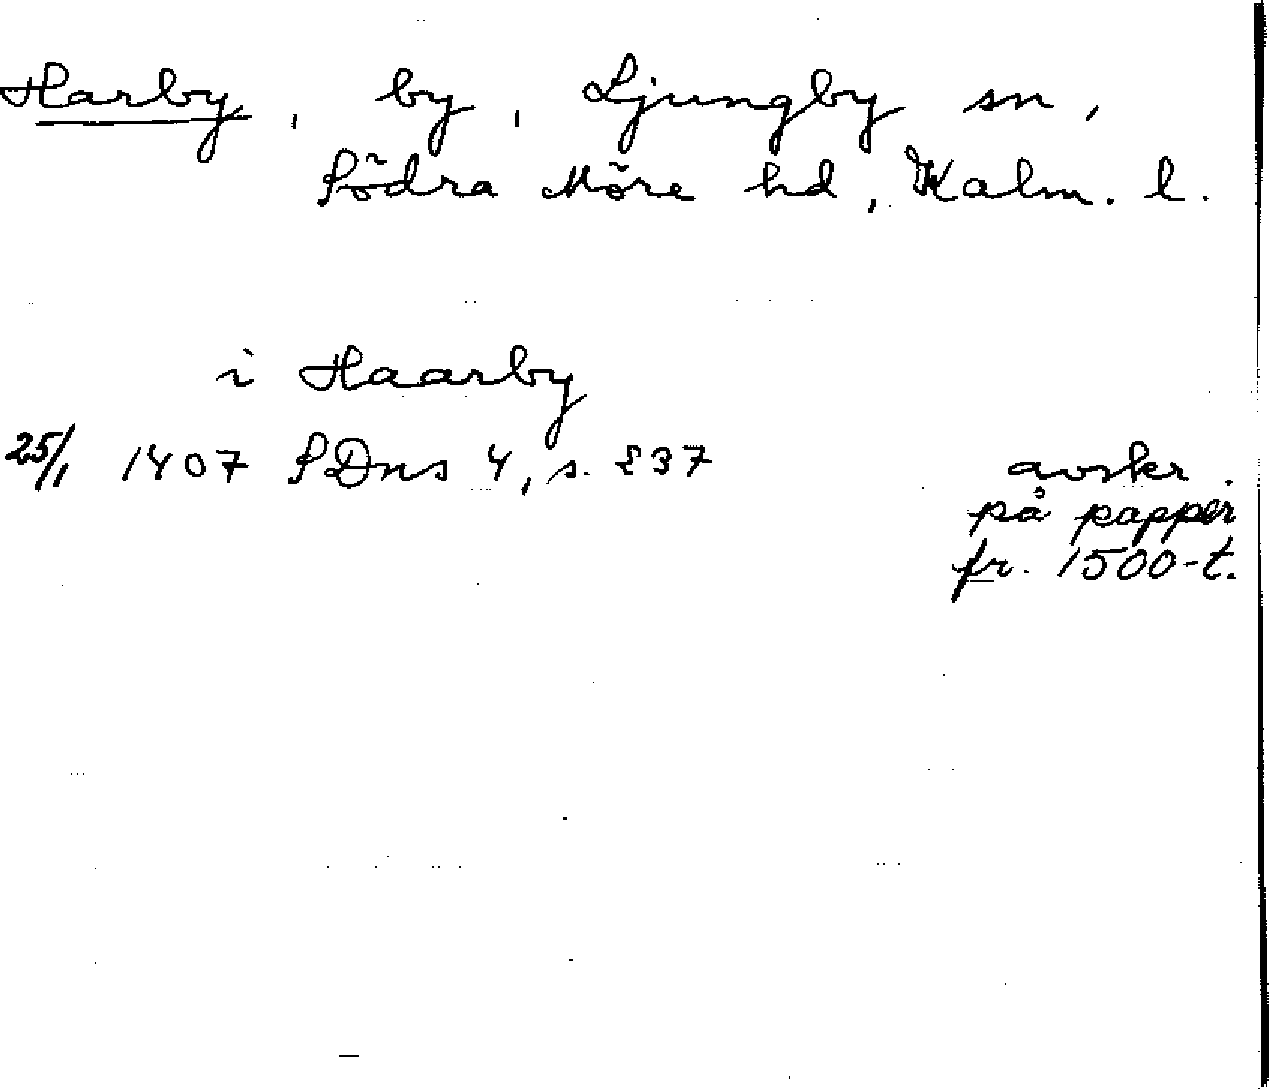 Harby, by, Ljungby sn,
Södra Möre hd, Kalm. l.
i Haarby
25/1 1407 SDns 4, s. 237 avskr.
på papper
fr. 1500-t.